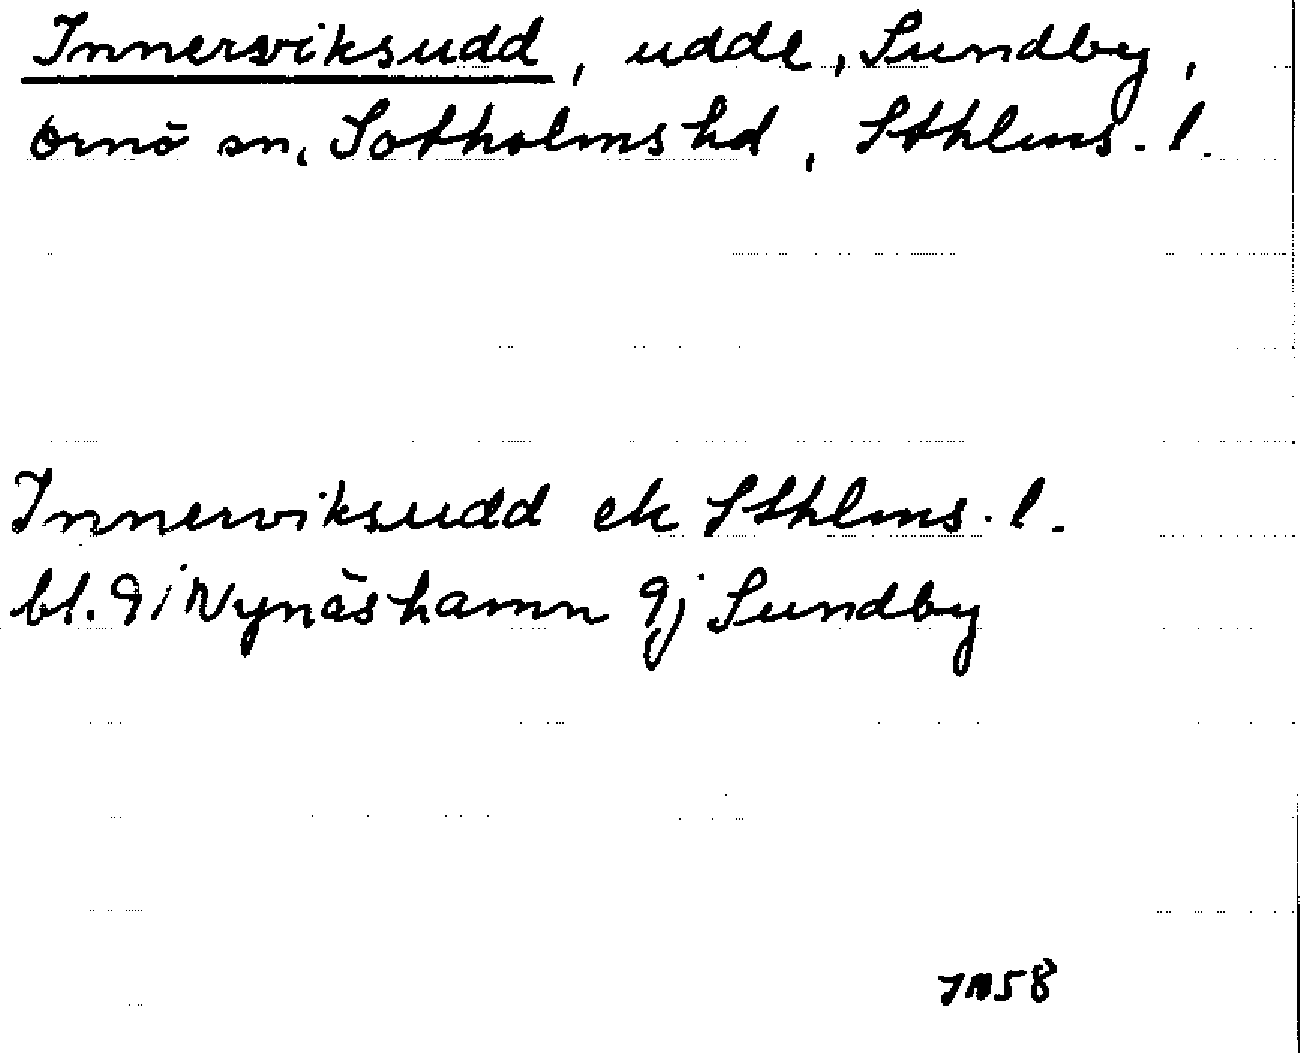 Innersviksudd, udde, Sundby,
Ornö sn, Sotholms hd, Sthlms. l.
Innerviksudd ek Sthlms. l.
bl. 9i Nynäshamn 9j Sundby